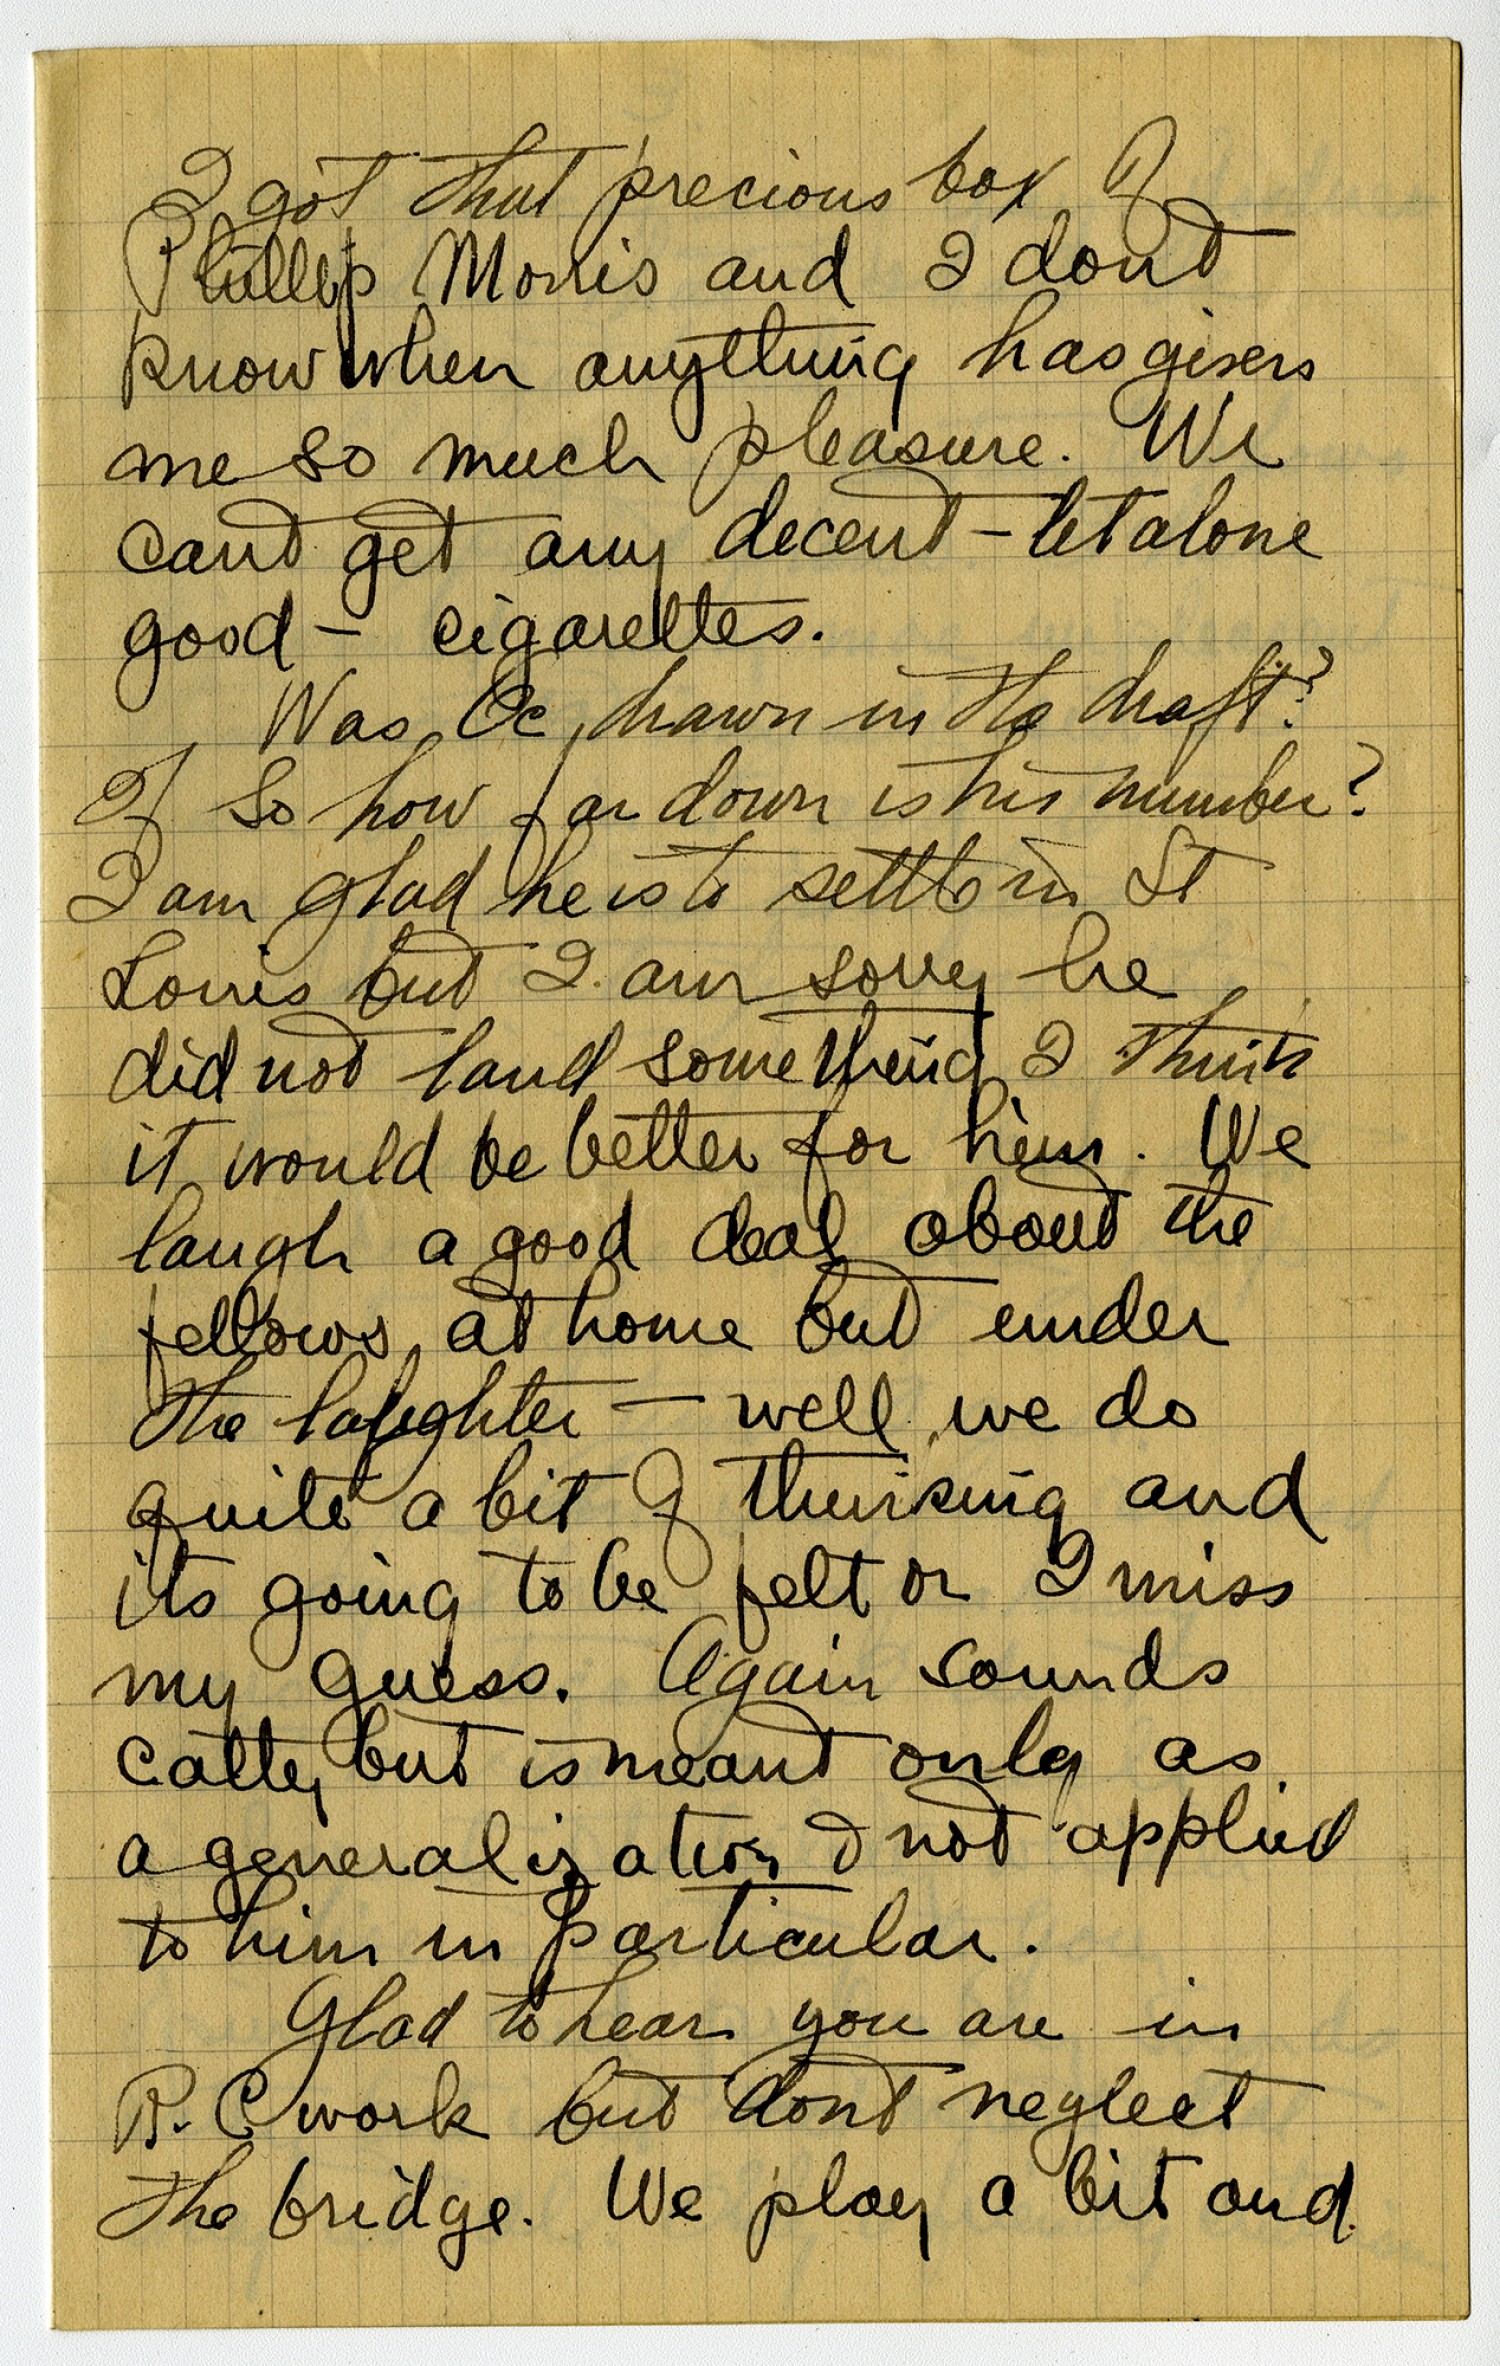 I got that precious box of
Phillip Morris and I dont
know when anything has given
me so much pleasure. We
cant get any decent - let alone
good - cigarettes.
Was Oc drawn in the draft?
If so how far down is his number?
I am glad he is to settle in St
Louis but I am sorry he
did not land something I think
it would be better for him. We
laugh a good deal about the
fellows at home but under
the laughter - well we do
quite a bit of thinking and
its going to be felt or I miss
my guess. Again sounds
catty but is meant only as
a generalization & not applied
to him in particular.
Glad to hear you are in
R. C work but dont neglect
the bridge. We play a bit and